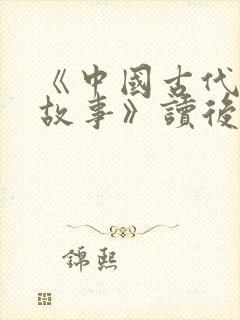 《中國古代
故事》讀後
錦熙